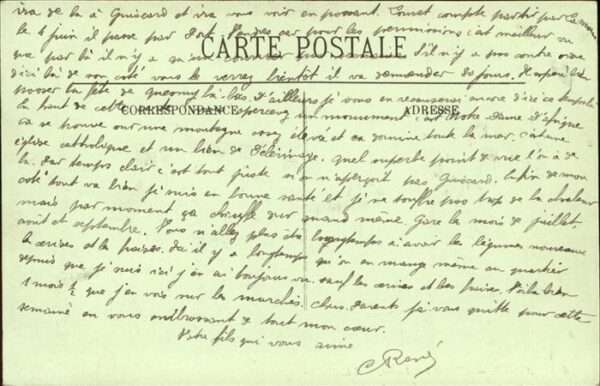 ira de là à Guiscard et ira vous voir en passant. compte partir par
le 1 juin il passe par car pour les permissions c'est meilleur
par là il n'y a s'il n'y a pas contre ordre
CARTE POSTALE
d'ici là de son côté vous le verrez bientôt il va demander 20 jours.
passer la fête de là-bas. D'ailleurs je vous en recauserai encore d'ici ce temps là
CORRESPONDANCE
ADRESSE
la haut de cette apercevez un monument c'est Notre Dame d'Afrique
ça se trouve sur une montagne assez élevée et on domine toute la mer. c'est une
église catholique et un lieu de pèlerinage. quel superbe point de vue l'on a de
là. Par temps clair c'est tout juste si on n'aperçoit pas Guiscard. Enfin de mon
côté tout va bien je suis en bonne santé et je ne souffre pas trop de la chaleur
mais par moment ça chauffe dur quand même. Gare le mois de juillet.
août et septembre. Vous n'allez plus être longtemps à avoir les légumes nouveaux
les cerises et les fraises. Ici il y a longtemps qu'on en mange même au quartier
depuis que je suis ici j'en ai toujours vu. sauf les cerises et les fraises. Voilà bien
1 mois ½ que j'en vois sur les marchés. Chers Parents je vous quitte pour cette
semaine en vous embrassant de tout mon cœur.
Votre fils qui vous aime
René